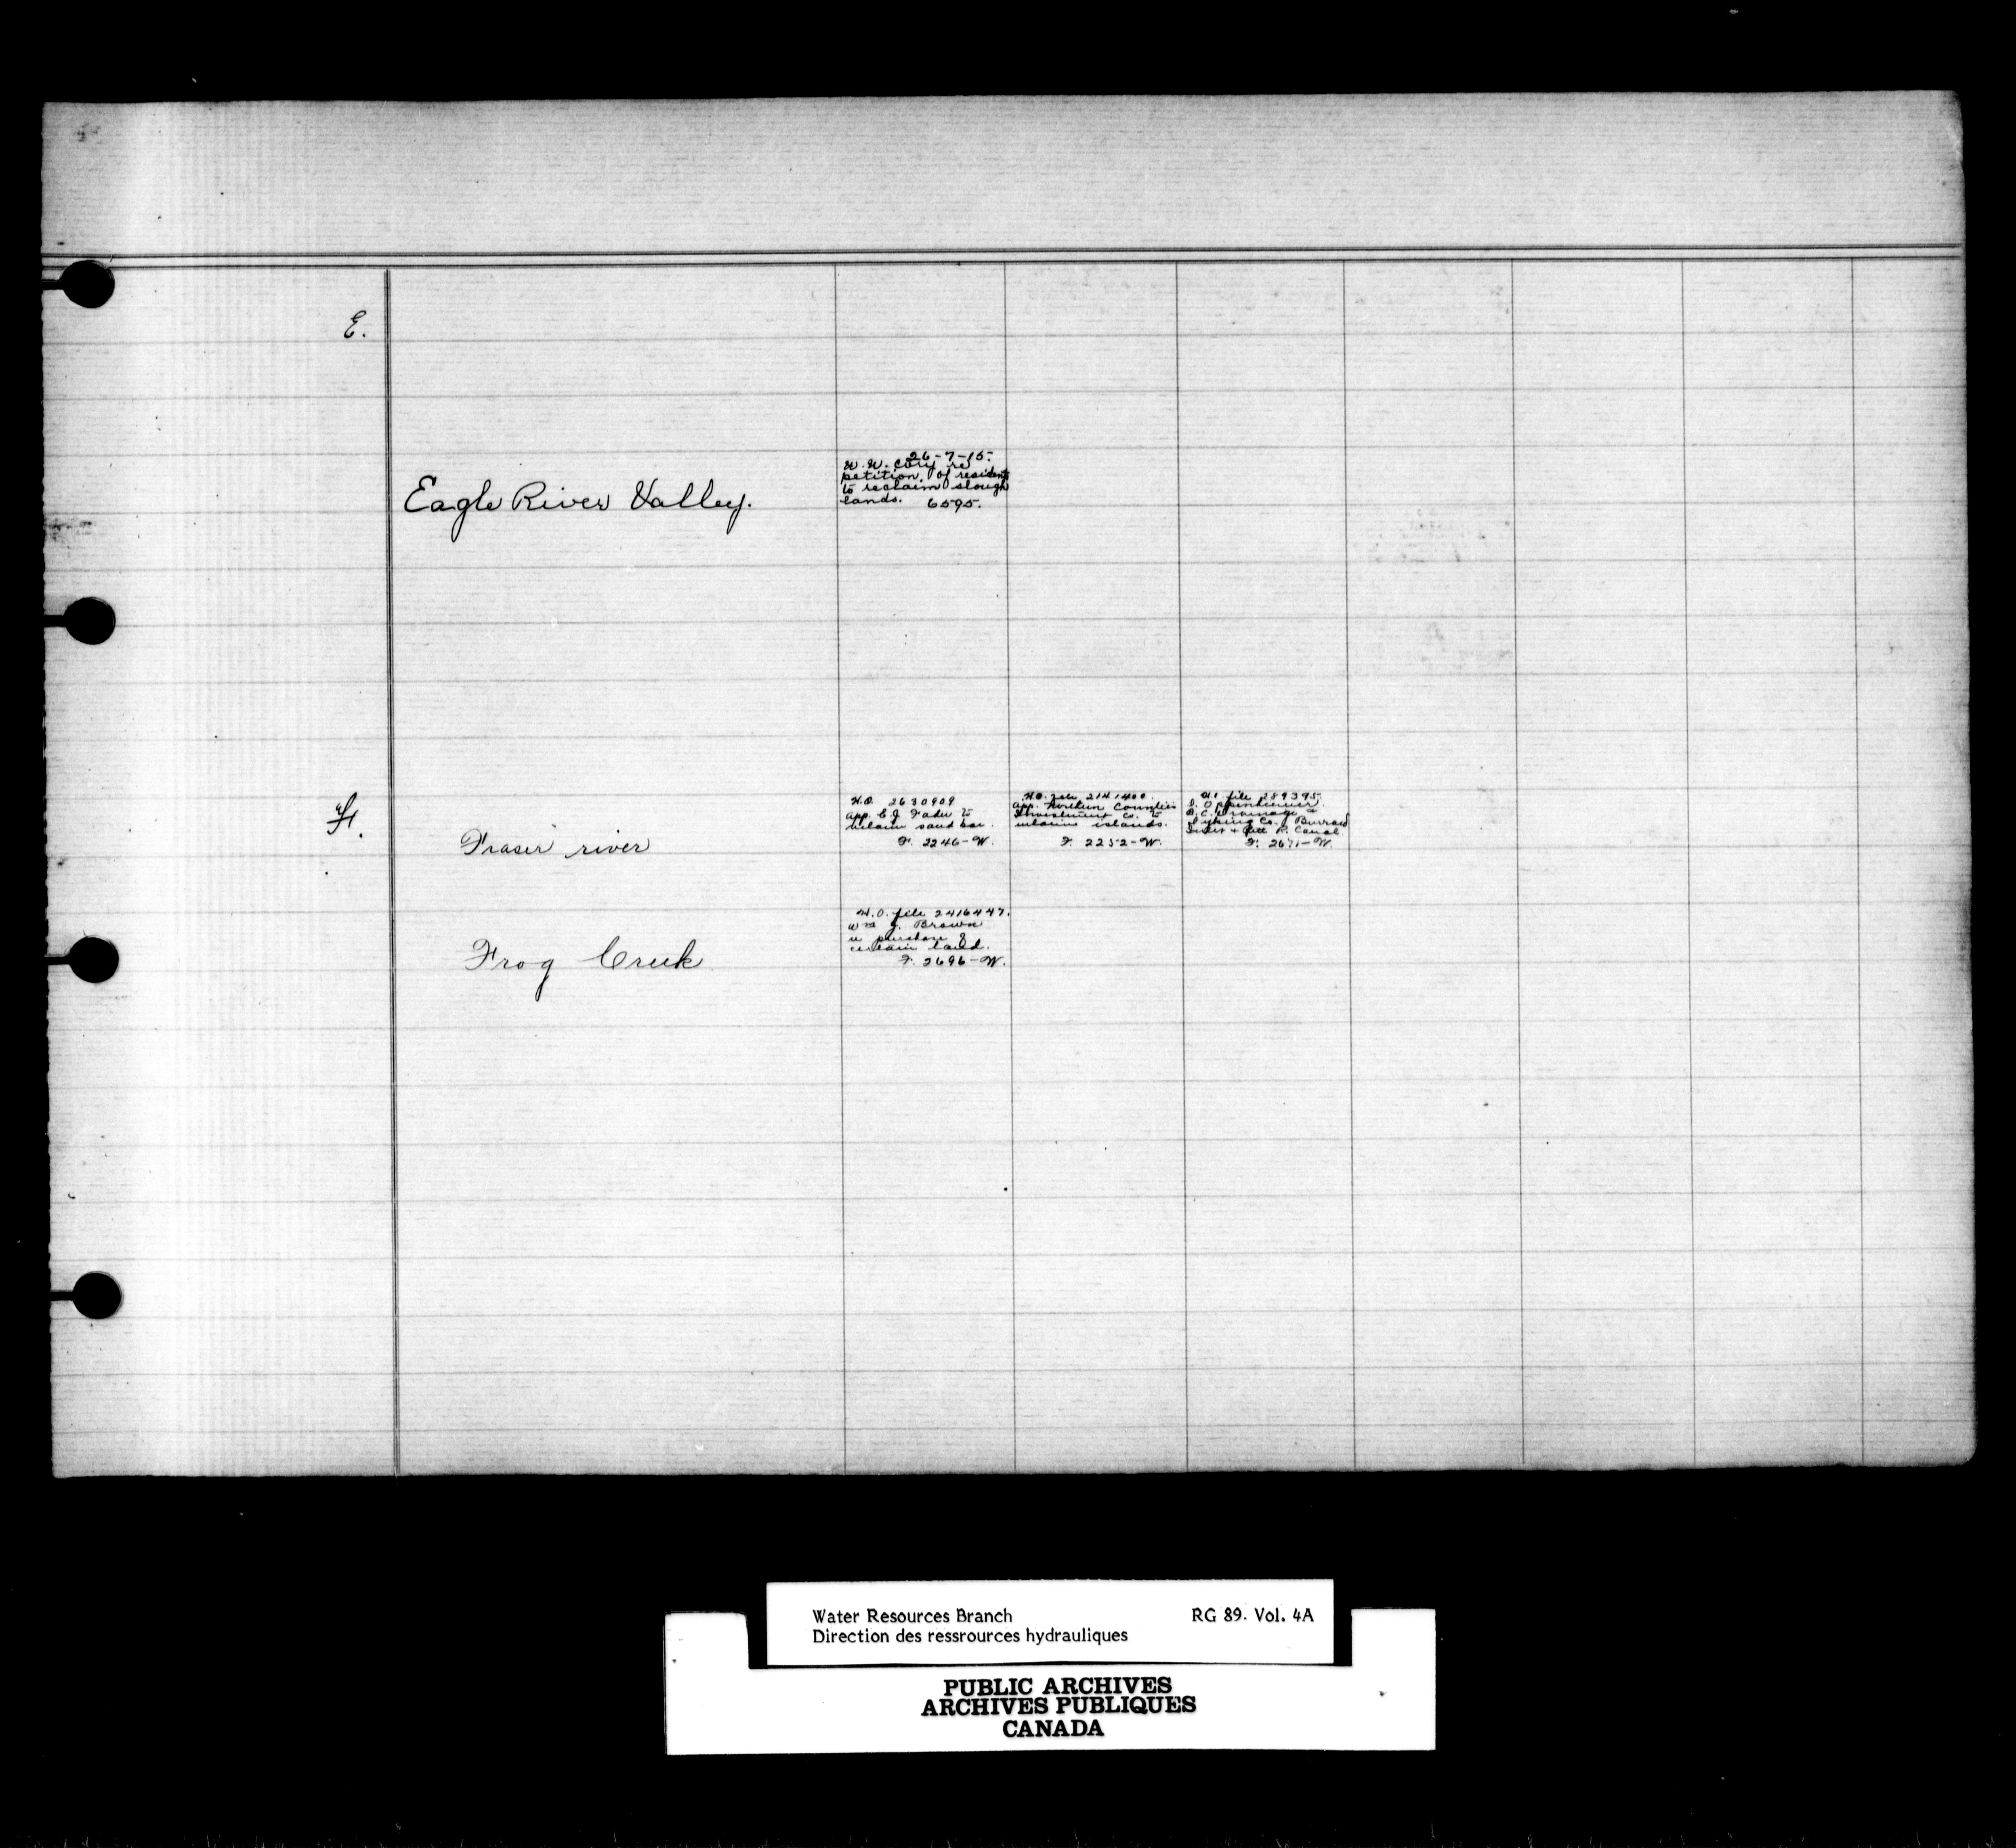 E.
Eagle River Valley.
26-7-15.
W. W. Cory re
petition of residents
to reclaim slough
lands.
6595.
F.
Fraser river
H.O. 2630909
app. C. J. Fader to
reclaim sand bar.
F. 2246-W.
H.O. file 2141400.
app. Northern Counties
Investment Co. to
reclaim islands.
F. 2252-W.
H.O. file 289395
D. Oppenheimer
B.C. Drainage
Dyking Co. Burrard
Inlet & Pitt R. Canal
F. 2671-W.
Frog Creek
H.O. file 2416447.
Wm J. Brown
re purchase of
certain land.
F. 2696-W.
Water Resources Branch RG 89. Vol. 4A
Direction des ressrources hydrauliques
PUBLIC ARCHIVES
ARCHIVES PUBLIQUES
CANADA